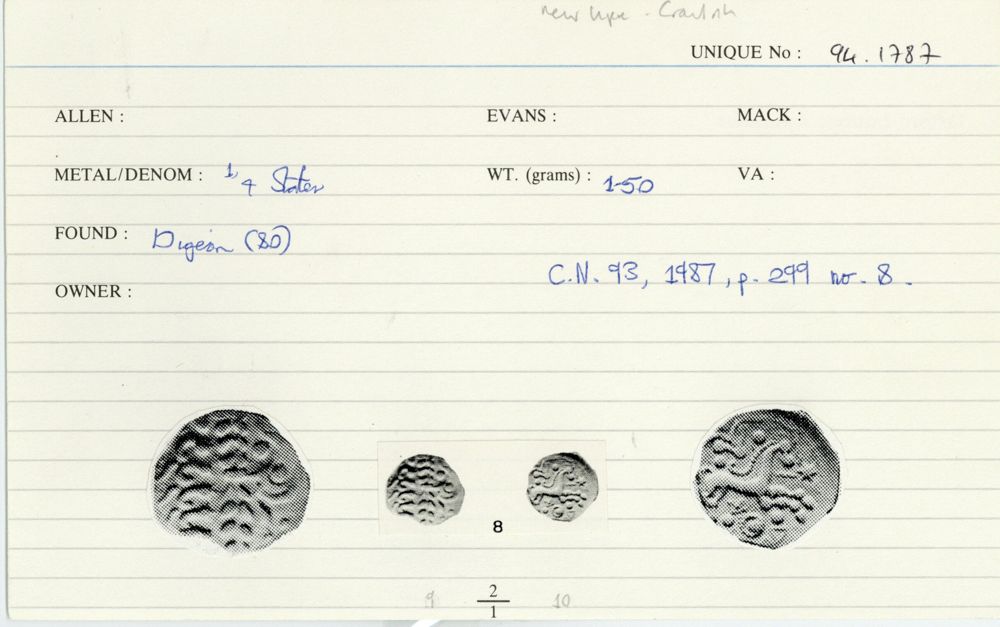 new type -
UNIQUE No : 94.1787
ALLEN : EVANS : MACK :
METAL/DENOM : 1/4 Stater WT. (grams) : 1.50 VA :
FOUND : Digeon (80)
C.N. 93, 1987, p. 299 no. 8.
OWNER :
8
9 2/1 10